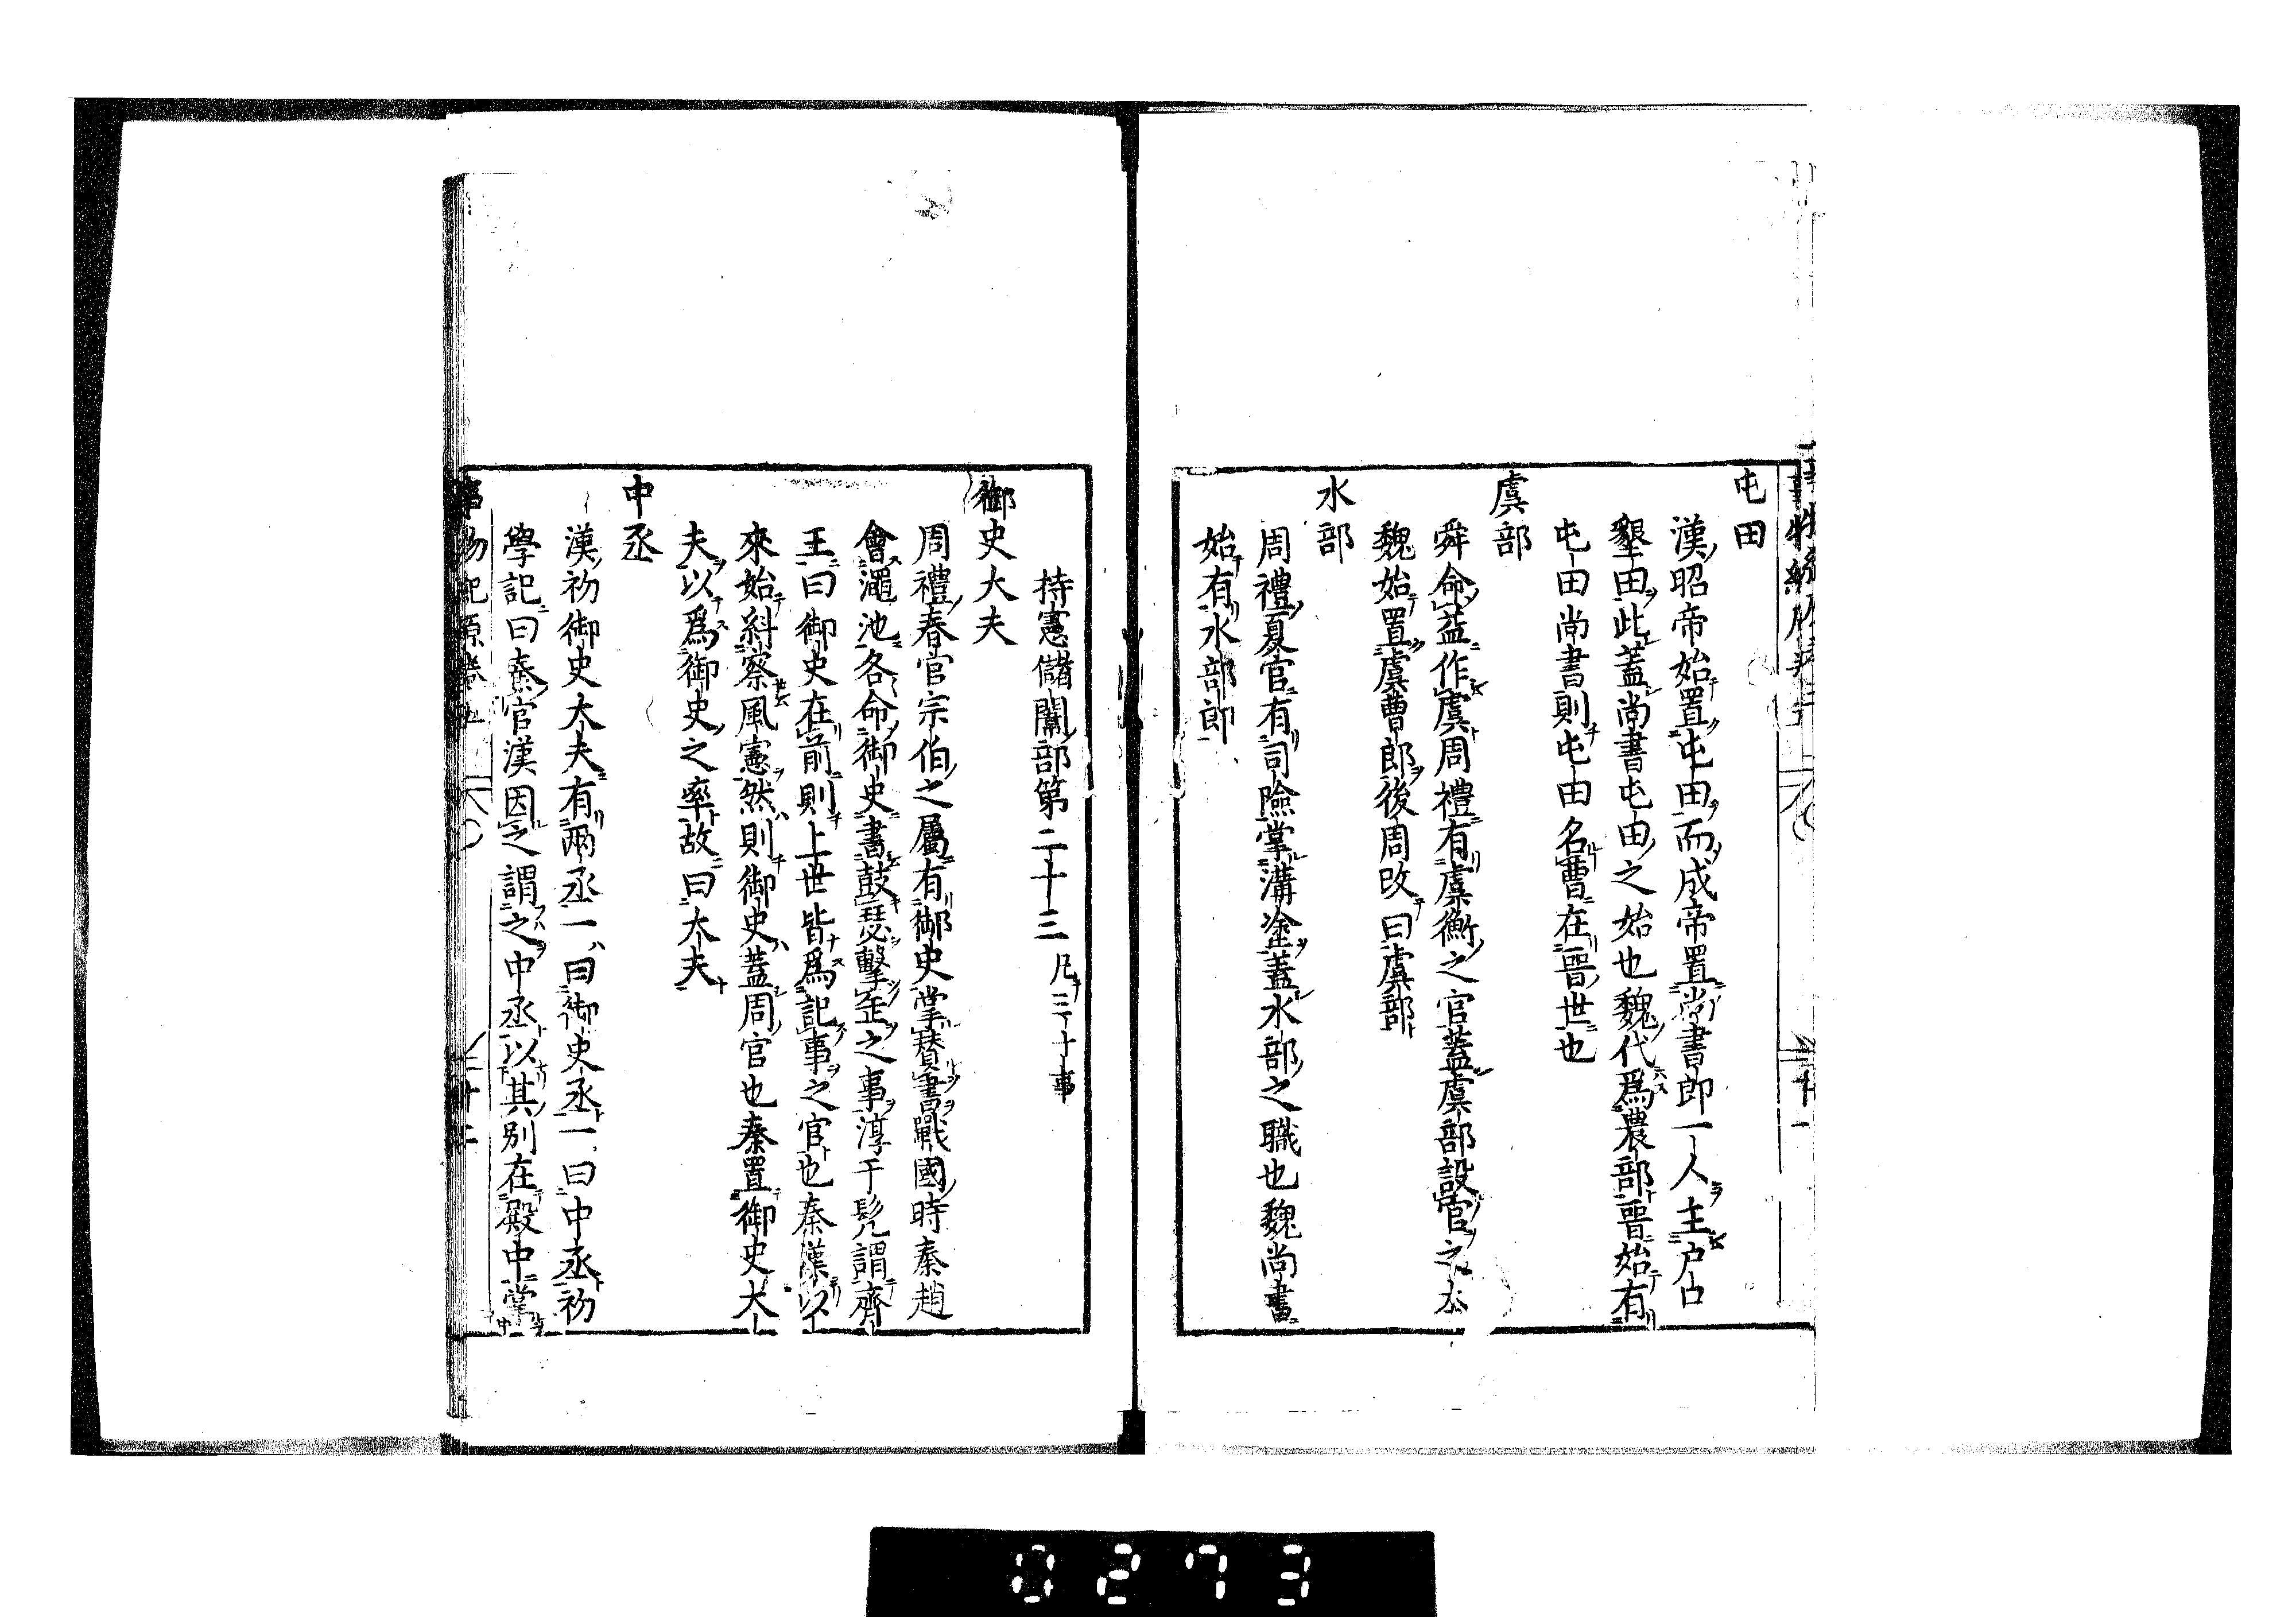 屯田
漢昭帝始置屯田而成帝置尚書郎一人主戸口
墾田此蓋尚書屯田之始也魏代爲農部晉始有
屯田尚書則屯田名曹在晉世也
虞部
舜命益作虞周禮有虞衡之官蓋虞部設官之本
魏始置虞曹郎後周改曰虞部
水部
周禮夏官有司險掌溝塗蓋水部之職也魏尚書
始有水部郎
持憲儲闈部第二十三 凡三十事
御史大夫
周禮春官宗伯之屬有御史掌贊書戰國時秦趙
會澠池各命御史書鼓瑟擊缶之事淳于髠謂齊
王曰御史在前則上世皆爲記事之官也秦漢以
來始糾察風憲然則御史蓋周官也秦置御史大
夫以爲御史之率故曰大夫
中丞
漢初御史大夫有兩丞一曰御史丞一曰中丞初
學記曰秦官漢因之謂之中丞以其別在殿中掌
事物紀原卷五 二十二
0273